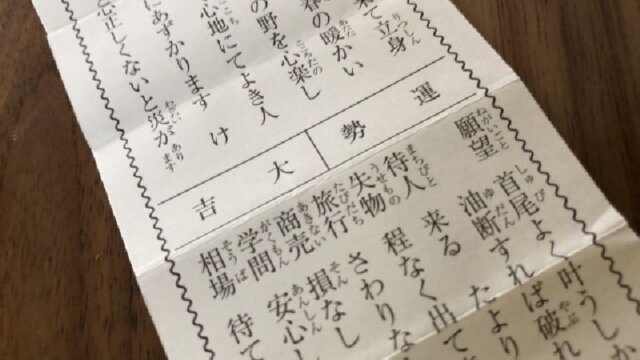 来て立身
春の暖かい
の野を心楽し
心地にてよき人
にあずかります
正しくないと災があります
運勢
大吉
願望 首尾よく叶うしか
油断すれば破れ
待人 来る たより
失物 程なく出て
旅行 さわりな
商売 損なし
学問 安心し
相場 待て